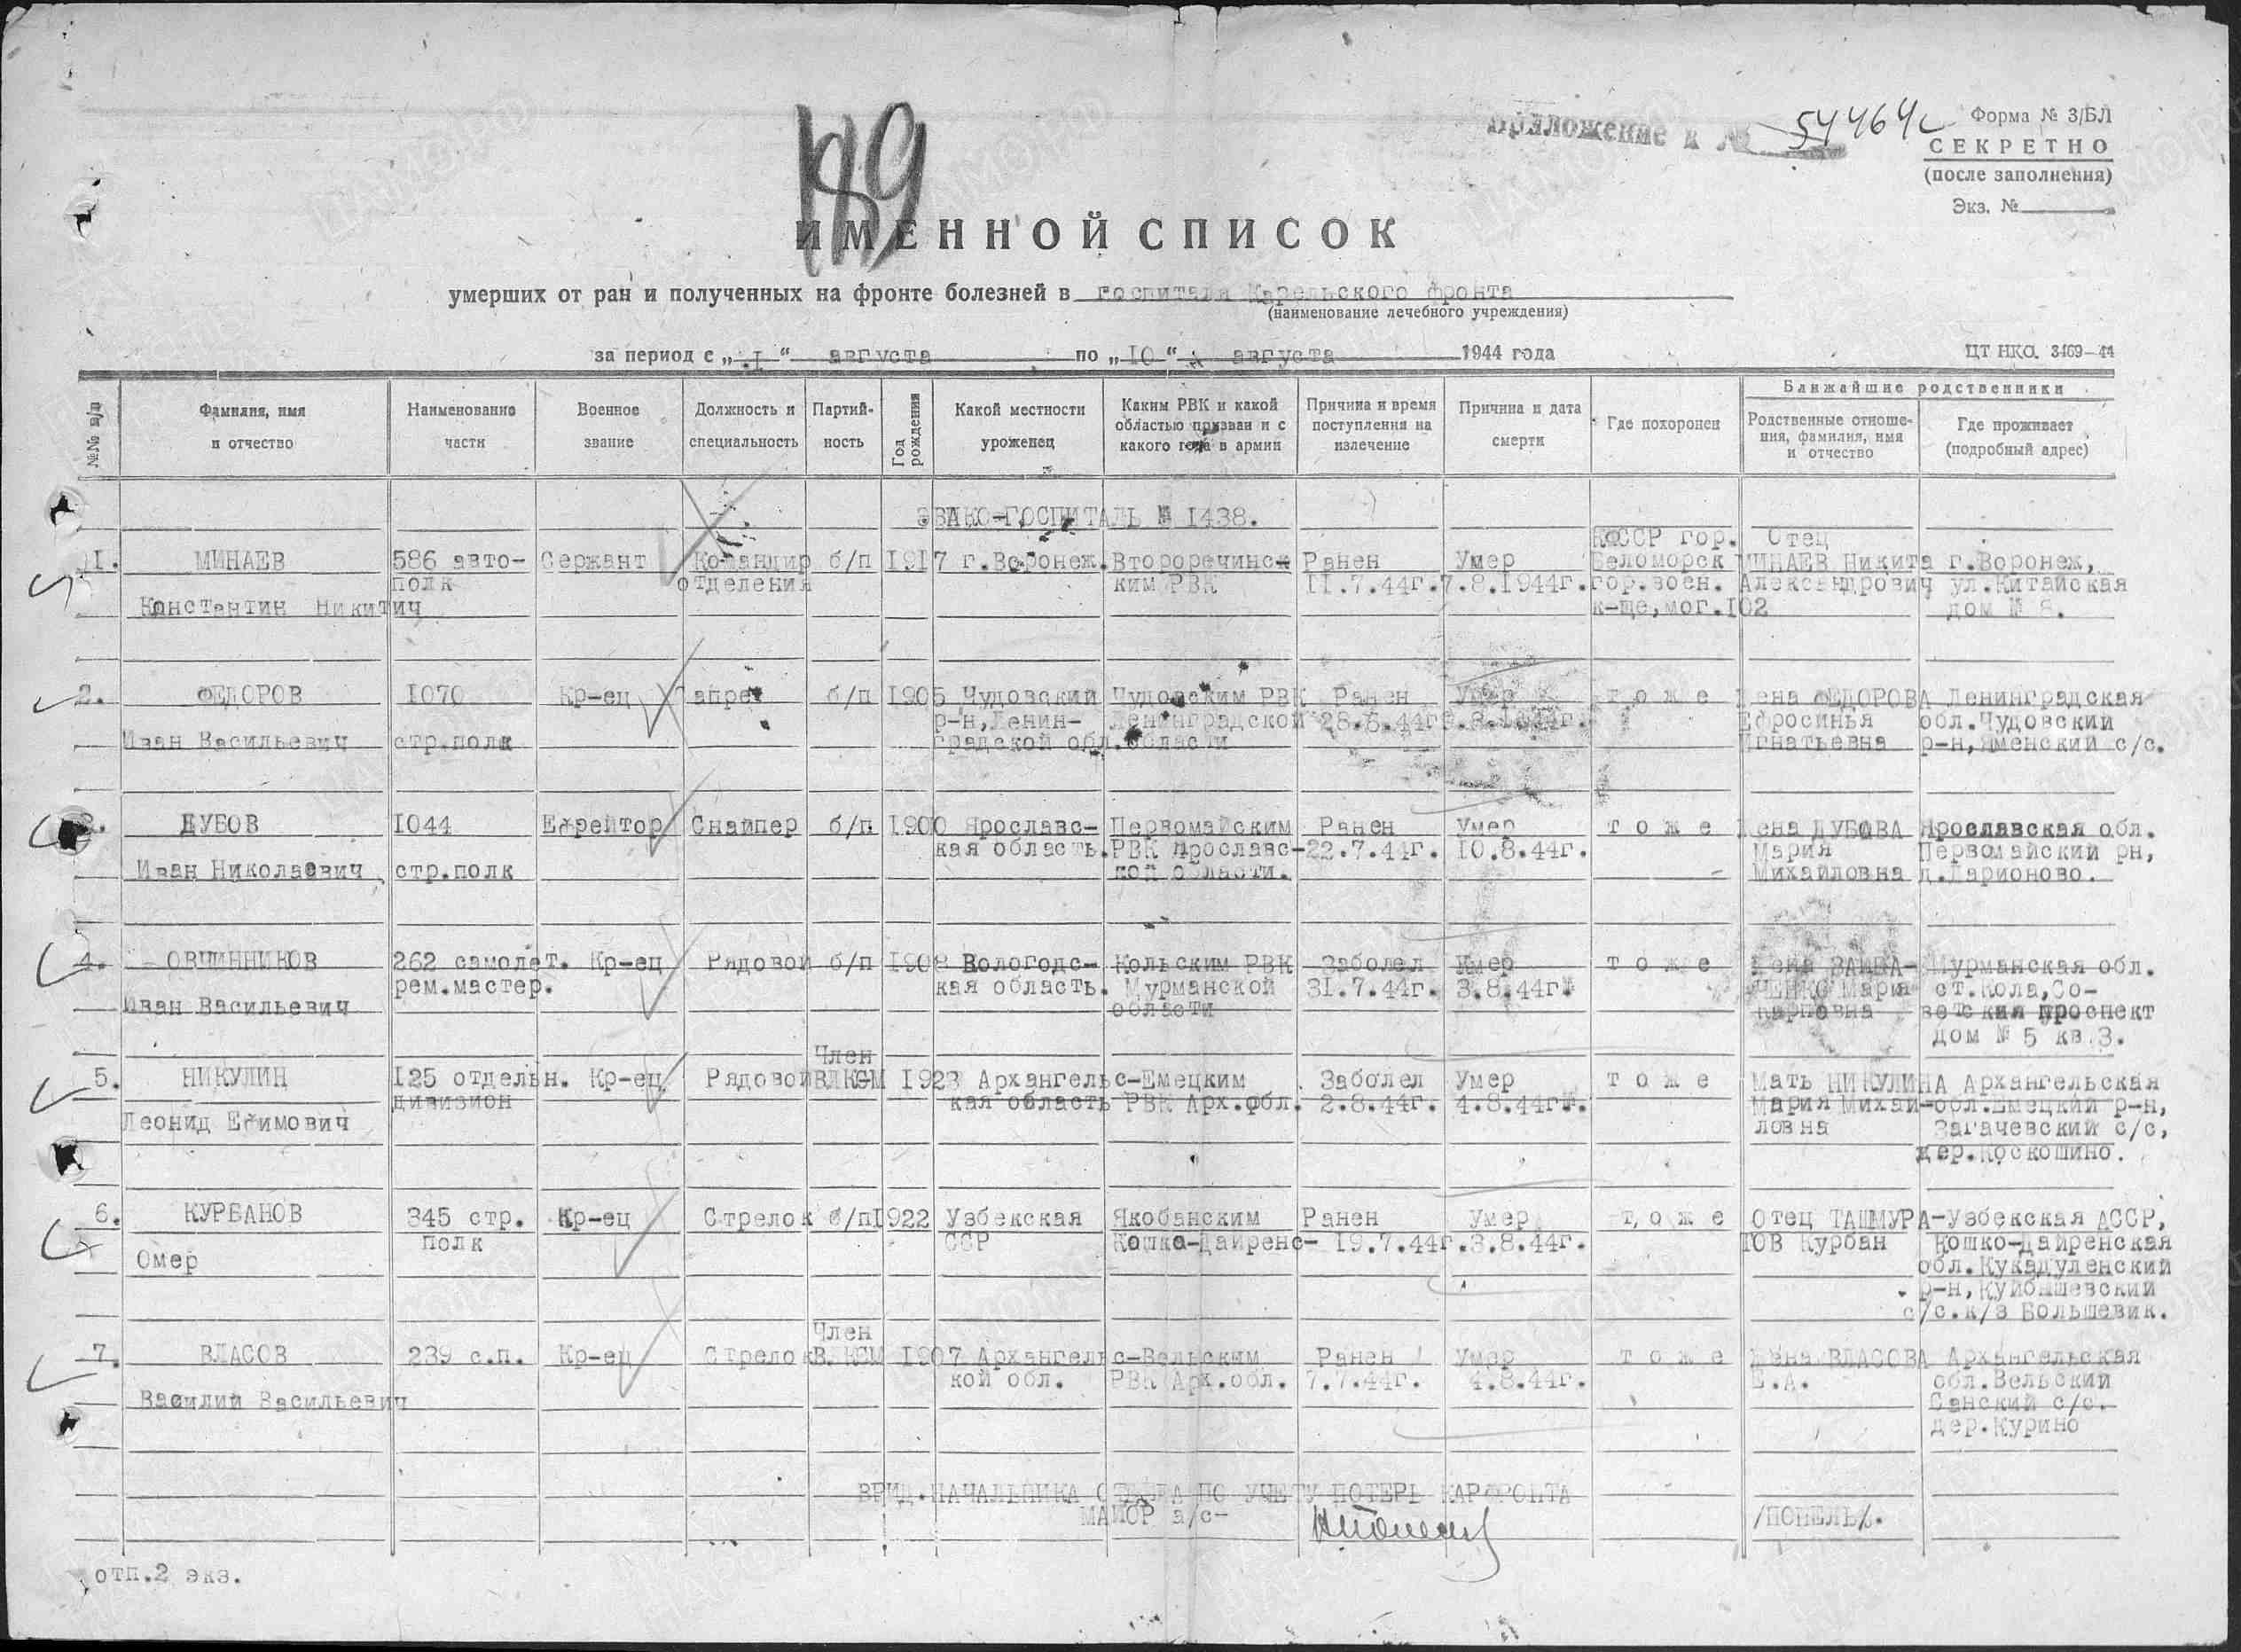 189
Приложение к № 54464с
Форма № 3/БЛ
СЕКРЕТНО
(после заполнения)
Экз. №
ИМЕННОЙ СПИСОК
умерших от ран и полученных на фронте болезней в госпитали Карельского фронта
(наименование лечебного учреждения)
за период с „ I “ августа по „ IO “ августа 1944 года
ЦТ НКО. 3469–44
№№ п/п
Фамилия, имя и отчество
Наименование части
Военное звание
Должность и специальность
Партий-ность
Год рождения
Какой местности уроженец
Каким РВК и какой областью призван и с какого года в армии
Причина и время поступления на излечение
Причина и дата смерти
Где похоронен
Ближайшие родственники
Родственные отноше-ния, фамилия, имя и отчество
Где проживает (подробный адрес)
ЭВАКО-ГОСПИТАЛЬ № I438.
КФССР гор. Отец
1. МИНАЕВ 586 авто- Сержант Командир б/п 1917 г.Воронеж. Второречинс- Ранен Умер Беломорск МИНАЕВ Никита г.Воронеж,
полк отделения ким РВК II.7.44г. 7.8.1944г. гор.воен. Александрович ул.Китайская
Константин Никитич к-ще,мог.I02 дом № 8.
2. ФЕДОРОВ I070 Кр-ец б/п 1905 Чудовский Чудовским РВК Ранен Умер т о ж е Жена ФЕДОРОВА Ленинградская
р-н,Ленин- Ленинградской Ефросинья обл.Чудовский
Иван Васильевич стр.полк градской обл. области Игнатьевна р-н, с/с.
3. ДУБОВ I044 Ефрейтор Снайпер б/п 1900 Ярославс- Первомайским Ранен Умер т о ж е Жена ДУБОВА Ярославская обл.
кая область. РВК Ярославс- 22.7.44г. I0.8.44г. Мария Первомайский рн,
Иван Николаевич стр.полк кой области. Михайловна д.Ларионово.
4. ОВЧИННИКОВ 262 самолет. Кр-ец Рядовой б/п 1908 Вологодс- Кольским РВК Заболел Умер т о ж е Жена Мурманская обл.
рем.мастер. кая область. Мурманской 31.7.44г. 3.8.44г. Мария ст.Кола,Со-
Иван Васильевич области Карповна ветский проспект
дом № 5 кв.3.
Член
5. НИКУЛИН I25 отдельн. Кр-ец Рядовой ВЛКСМ 1923 Архангельс- Емецким Заболел Умер т о ж е Мать НИКУЛИНА Архангельская
дивизион кая область РВК Арх.обл. 2.8.44г. 4.8.44г. Мария Михай- обл.Емецкий р-н,
Леонид Ефимович ловна Загачевский с/с,
дер.Коскошино.
6. КУРБАНОВ 345 стр. Кр-ец Стрелок б/п 1922 Узбекская Якобанским Ранен Умер т о ж е Отец ТАШМУРА- Узбекская АССР,
полк ССР Кошко-Дайренс- I9.7.44г. 3.8.44г. ТОВ Курбан Кошко-дайренская
Омер обл.Кукадуленский
р-н,Куйбышевский
с/с.к/з Большевик.
Член
7. ВЛАСОВ 239 с.п. Кр-ец Стрелок ВЛКСМ 1907 Архангельс- Вельским Ранен Умер т о ж е Жена ВЛАСОВА Архангельская
кой обл. РВК Арх.обл. 7.7.44г. 4.8.44г. Е.А. обл.Вельский
Василий Васильевич Санский с/с.
дер.Курино
ВРИД.НАЧАЛЬНИКА ОТДЕЛА ПО УЧЕТУ ПОТЕРЬ КАРФРОНТА
МАЙОР а/с- /ПОПЕЛЬ/.
отп.2 экз.